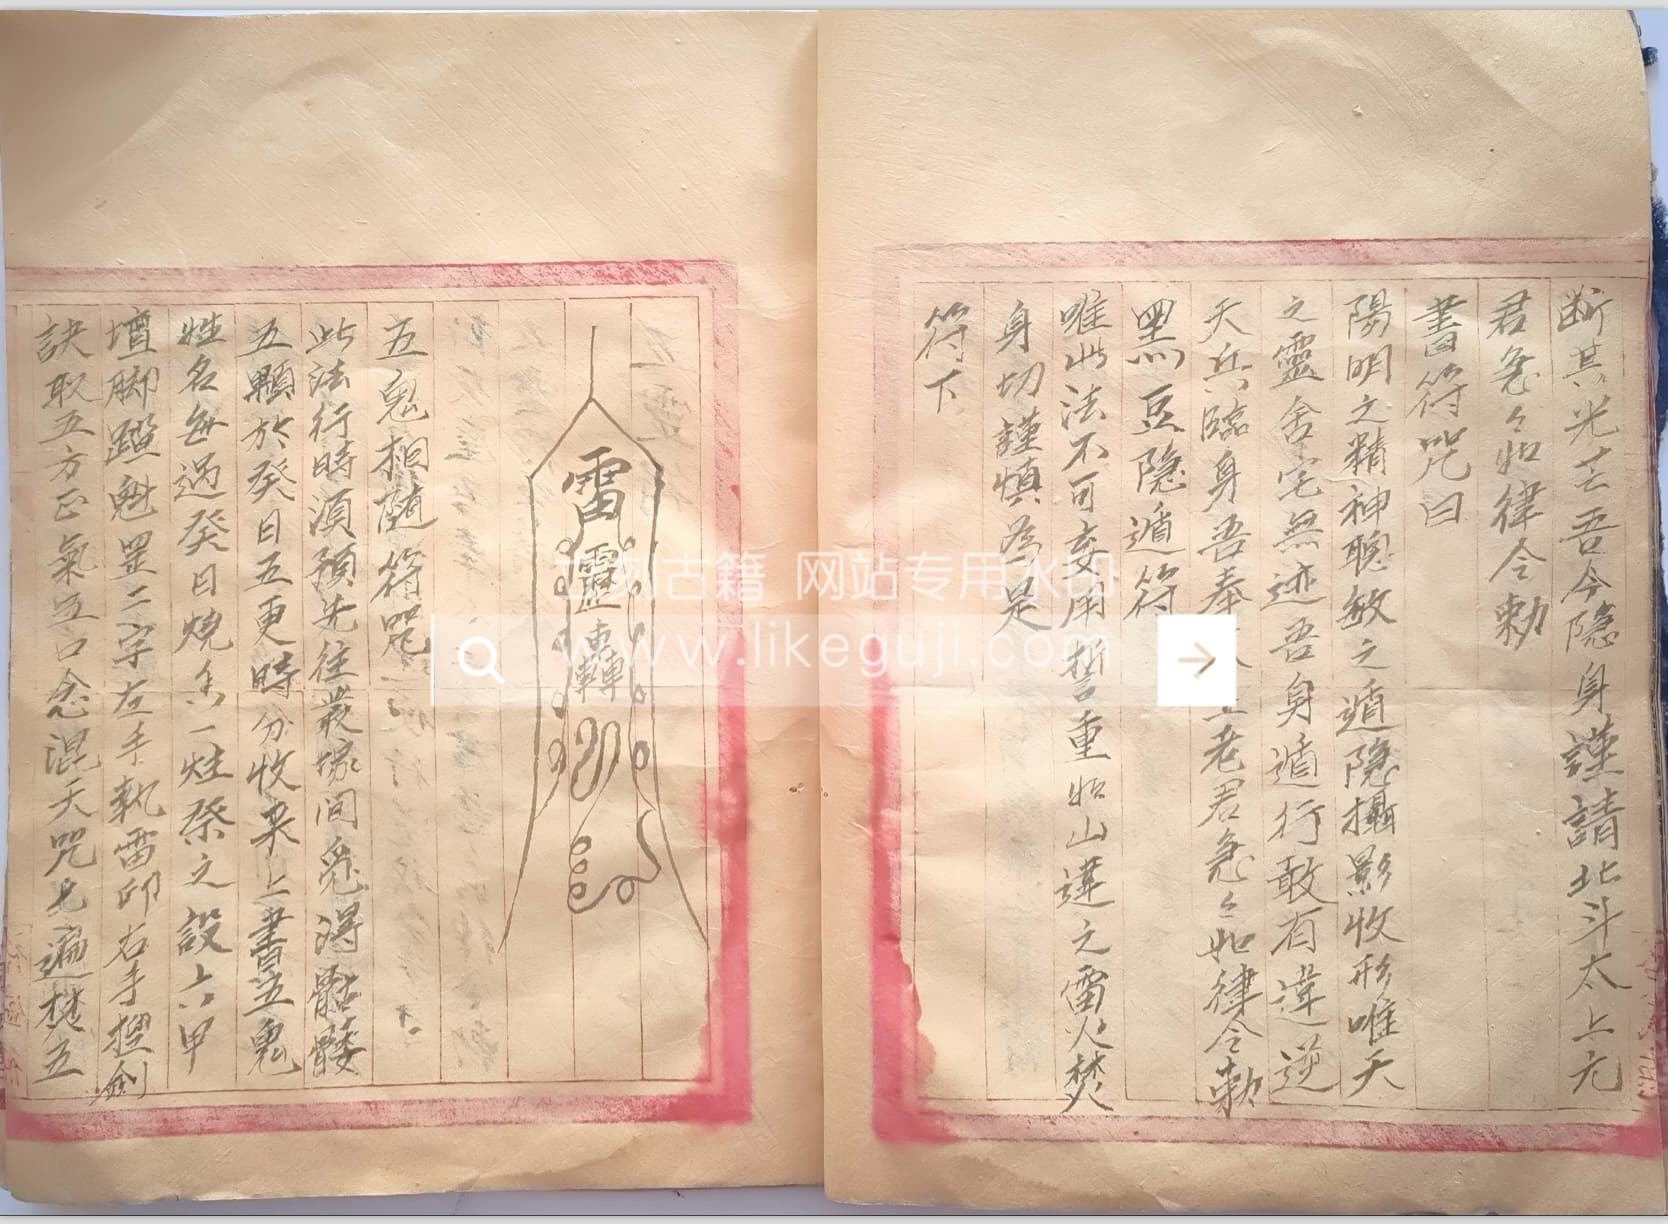 断其光芒吾今隐身謹請北斗太上元
君急々如律令勅
書符咒曰
陽明之精神聰敏之遁隐攝影收形唯天
之靈舍宅無迹吾身遁行敢有違逆
天兵臨身吾奉上老君急々如律令勅
黑豆隐遁符
唯此法不可妄用誓重如山違之雷火焚
身切謹慎為是
符下
雷靈轟轉
五鬼相随符咒
此法行時須預先往叢塚间覓得骷髏
五顆於癸日五更時分收来上書五鬼
姓名每遇癸日燒香一炷祭之設六甲
壇脚踏魁罡二字左手執雷印右手揑劍
訣取五方正氣五口念混天咒七遍焚五
古籍 网站专用水印
www.likeguji.com